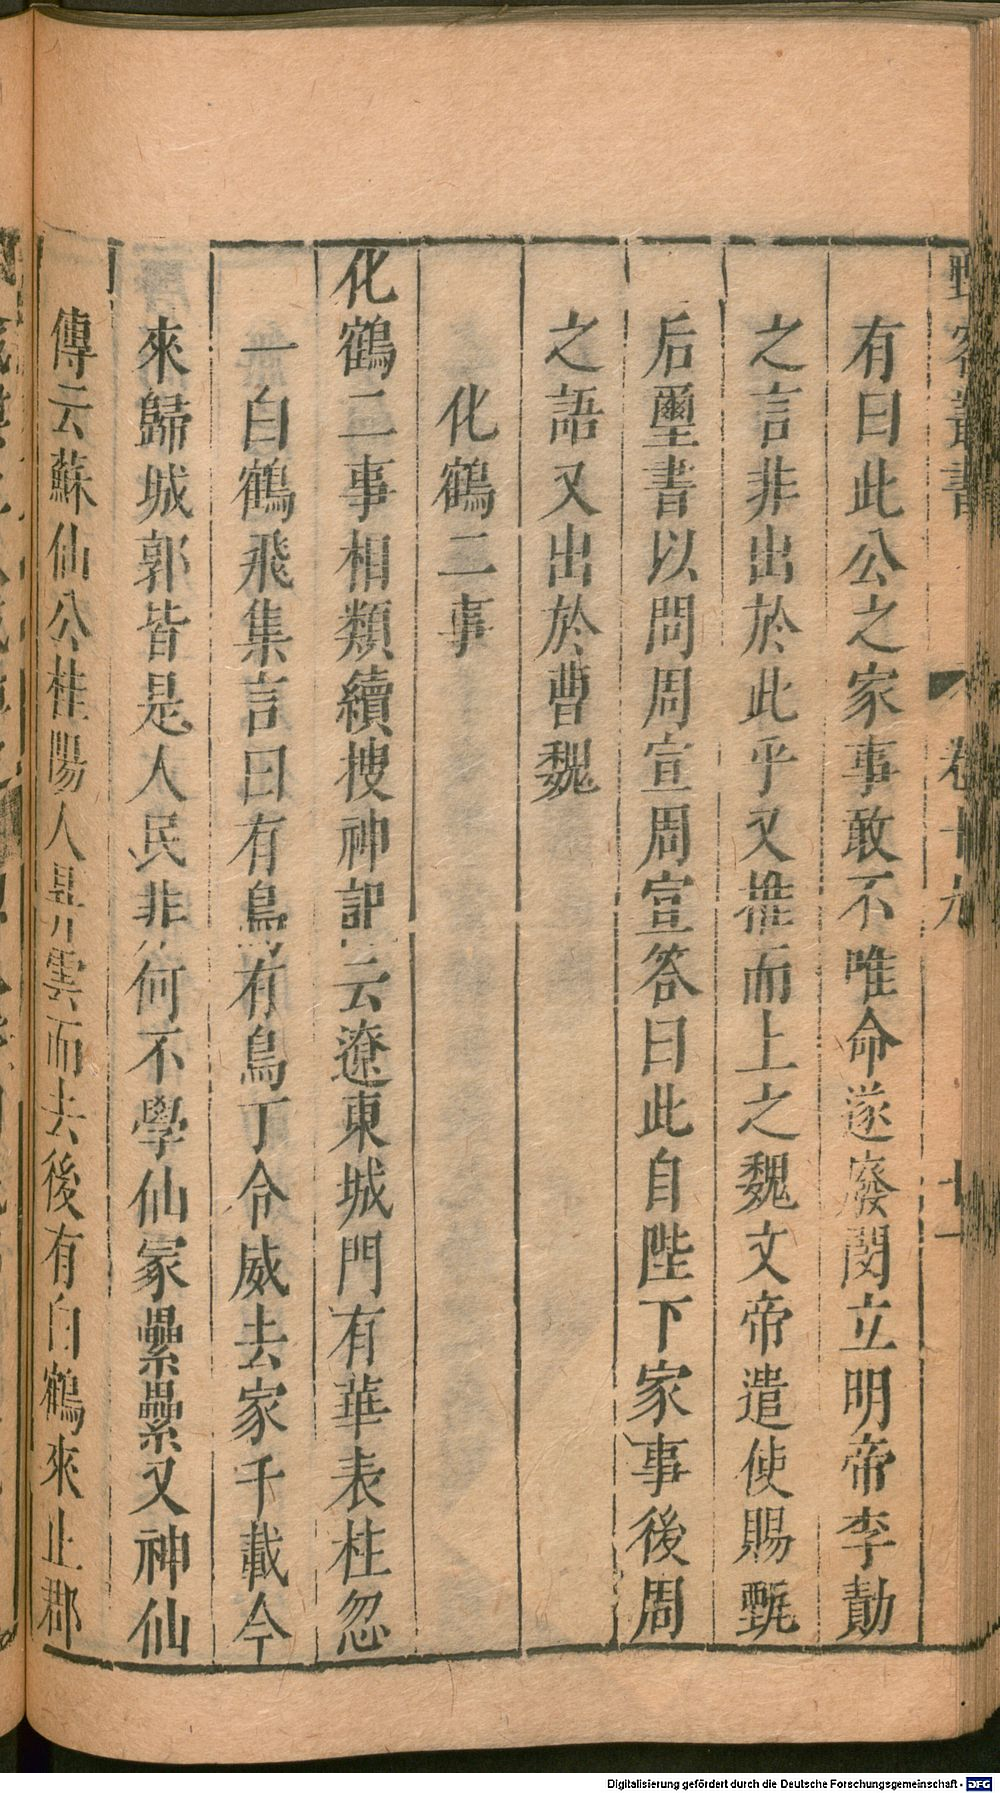 野客叢書 卷十九 十一
有曰此公之家事敢不唯命遂廢閔立明帝李勣
之言非出於此乎又推而上之魏文帝遣使賜甄
后璽書以問周宣周宣答曰此自陛下家事後周
之語又出於曹魏
化鶴二事
化鶴二事相類續搜神記云遼東城門有華表柱忽
一白鶴飛集言曰有鳥有鳥丁令威去家千載今
來歸城郭皆是人民非何不學仙冢纍纍又神仙
傳云蘇仙公桂陽人昇雲而去後有白鶴來止郡
Digitalisierung gefördert durch die Deutsche Forschungsgemeinschaft - DFG